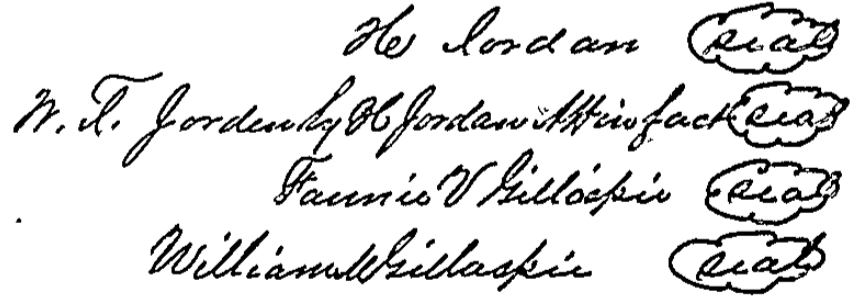 H Jordan seal
W. T. Jorden by H Jordan Att in fact seal
Fannie V Gillospie seal
William M Gillaspie seal